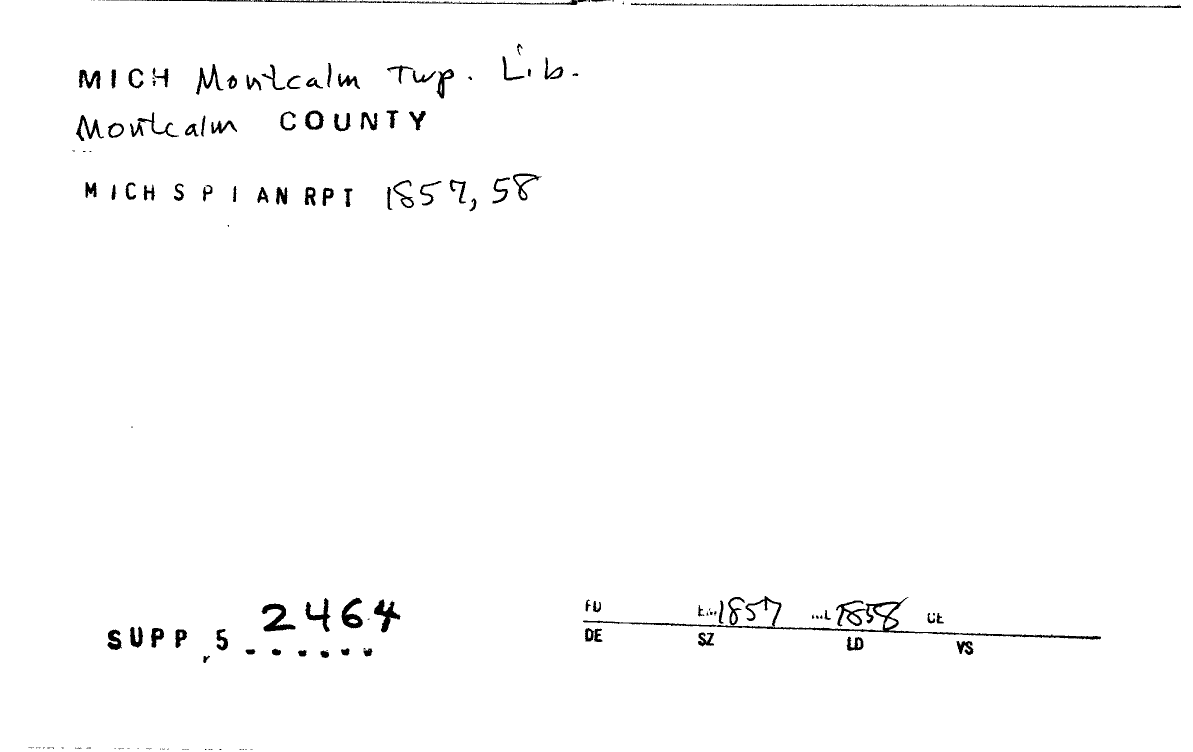 MICH Montcalm Twp. Lib.
Montcalm COUNTY
MICH S P I AN RPT 1857, 58
SUPP, 5 2464
FU 1857 1858 CE
DE SZ LD VS